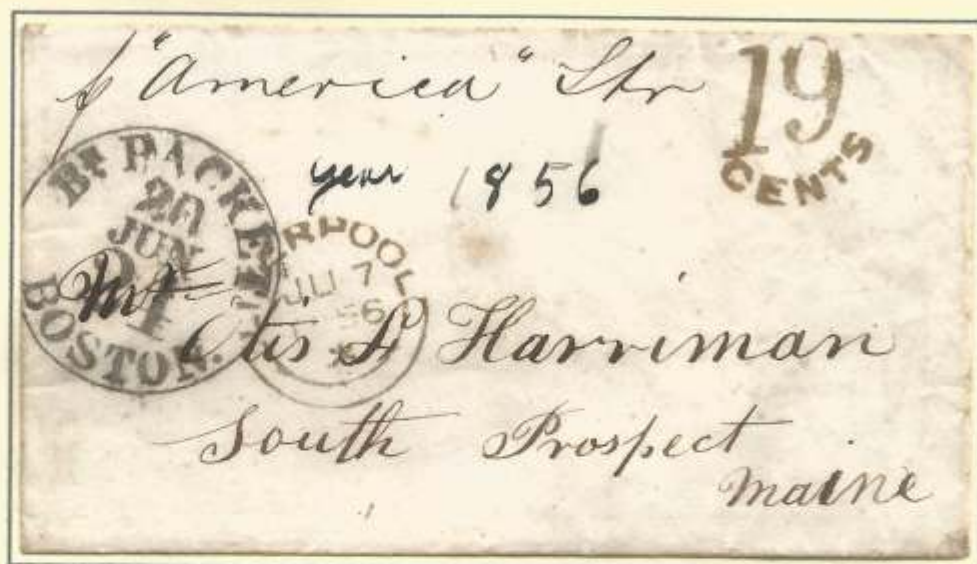 p "America" Str
19
CENTS
year 1856
BR PACKET
20
JUN
BOSTON.
RPOOL
JU 7
56
Mr
Otis S Harriman
South Prospect
Maine